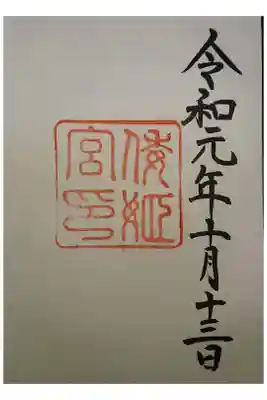 令和元年十月十三日
倭姫
宮印